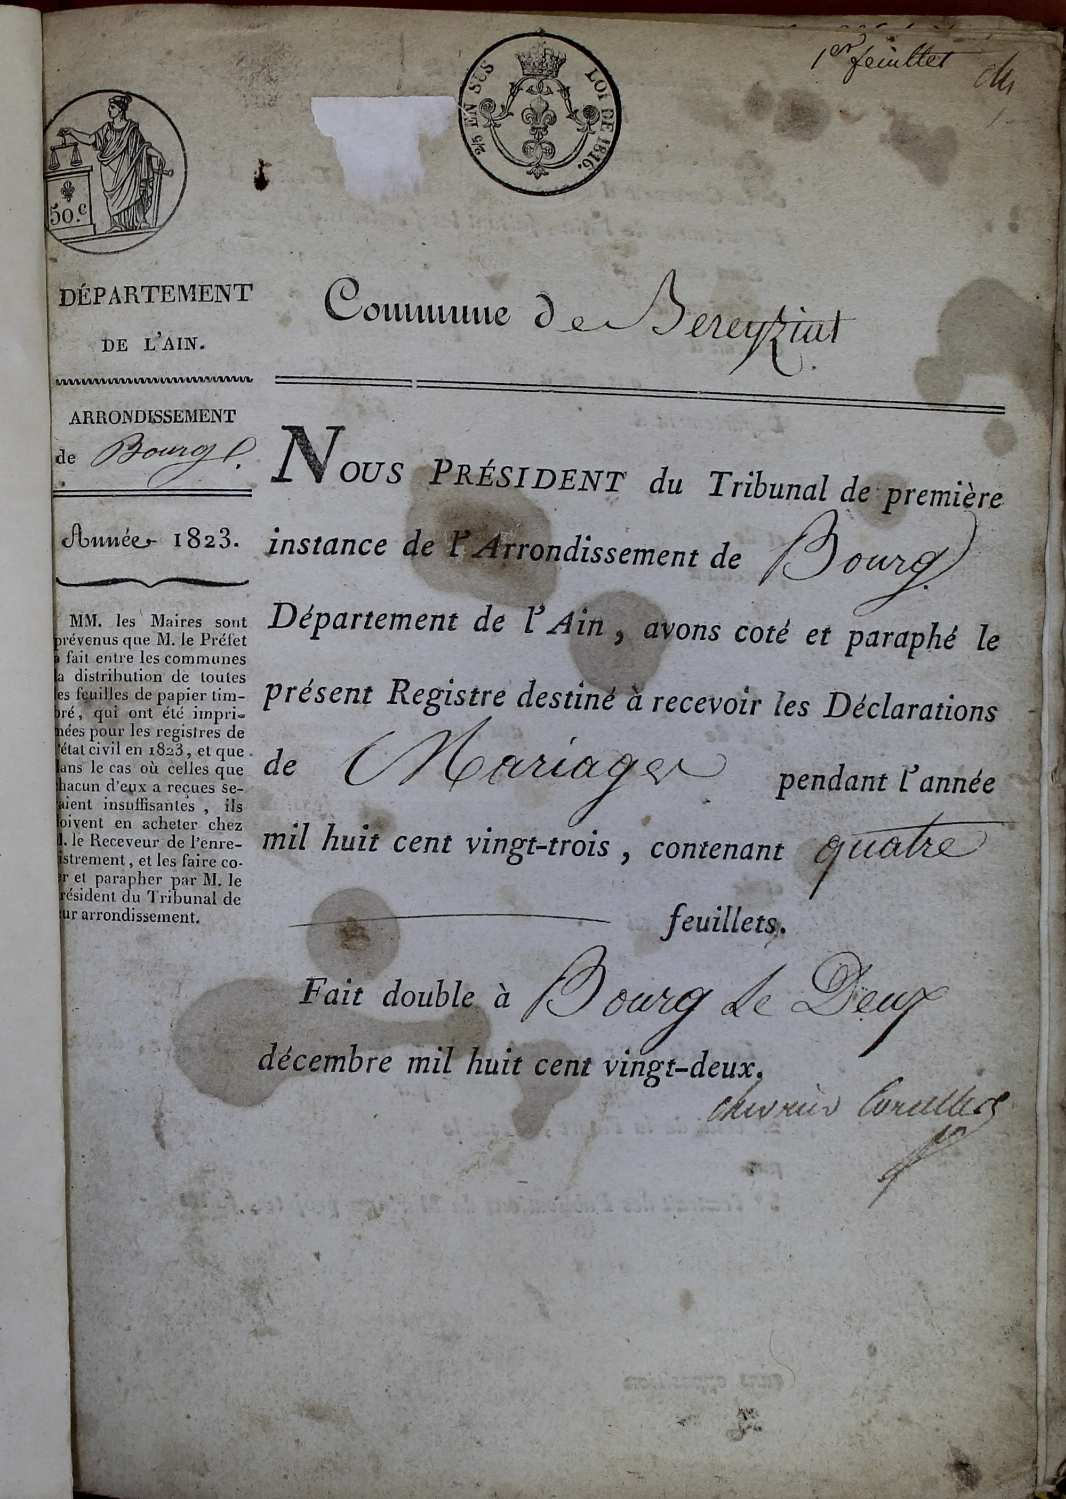 1er feuillet
2/5 EN SUS
LOI DE 1816.
50.c
DÉPARTEMENT
DE L'AIN.
ARRONDISSEMENT
de Bourg
Année 1823.
MM. les Maires sont
prévenus que M. le Préfet
a fait entre les communes
la distribution de toutes
les feuilles de papier tim-
bré, qui ont été impri-
mées pour les registres de
l'état civil en 1823, et que
dans le cas où celles que
chacun d'eux a reçues se-
raient insuffisantes, ils
doivent en acheter chez
M. le Receveur de l'enre-
gistrement, et les faire co-
ter et parapher par M. le
Président du Tribunal de
leur arrondissement.
Commune de Bereyziat
NOUS PRÉSIDENT du Tribunal de première
instance de l'Arrondissement de Bourg
Département de l'Ain, avons coté et paraphé le
présent Registre destiné à recevoir les Déclarations
de Mariages pendant l'année
mil huit cent vingt-trois, contenant quatre
feuillets.
Fait double à Bourg le Deux
décembre mil huit cent vingt-deux.